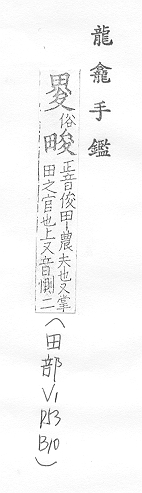 龍龕手鑑
畟俗
畯正音俊田農夫也又掌
田之官也上又音惻二
(田部
V1
P53
B10)